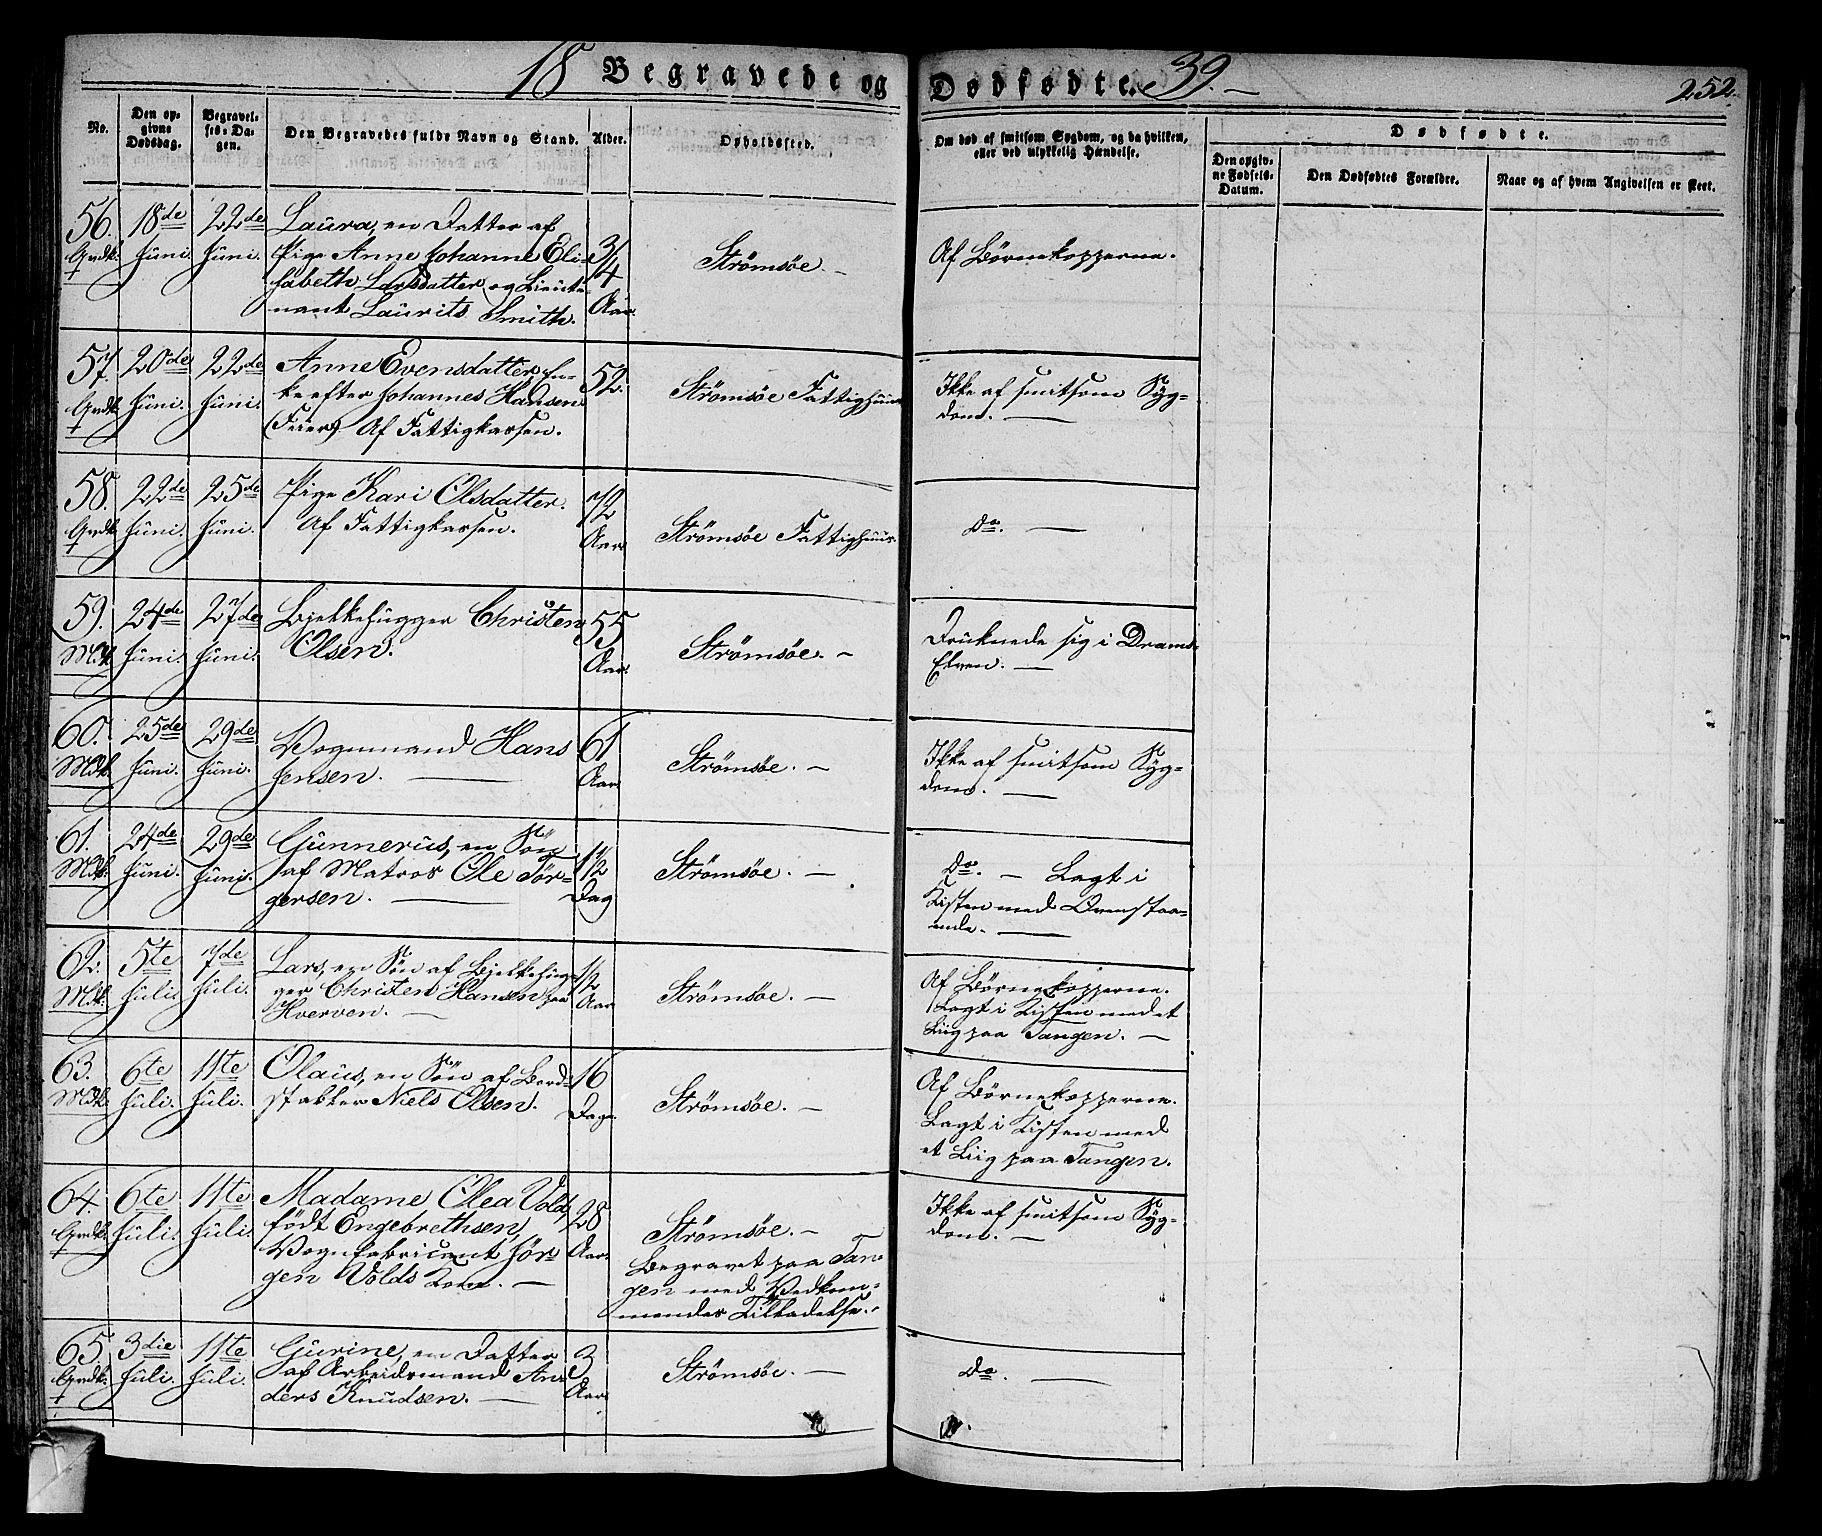 18 Begravede og Dødfødte. 39.
252.
No.
Den op-
givne
Dødsdag.
Begravel-
ses-Da-
gen.
Den Begravedes fulde Navn og Stand.
Alder.
Opholdssted.
Om død af smitsom Sygdom, og da hvilken,
eller ved ulykkelig Hændelse.
Dødfødte.
Den opgiv-
ne Fødsels-
Datum.
Den Dødfødtes Forældre.
Naar og af hvem Angivelsen er skeet.
56.
Qvdk.
18de
Juni.
22de
Juni.
Laura, en Datter af
Pige Anne Johanne Eli-
sabeth Larsdatter og Lieute-
nant Laurits Smith.
3/4
Aar.
Strömsöe.
Af Börnekopperne.
57.
Qvdk.
20de
Juni.
22de
Juni.
Anne Evensdatter, En-
ke efter Johannes Hansen
(Feier). Af Fattigkassen.
52.
Strömsöe Fattighuus
Ikke af smitsom Syg-
dom.
58.
Qvdk.
22de
Juni.
25de
Juni.
Pige Kari Olsdatter.
Af Fattigkassen.
72
Aar.
Strömsöe Fattighuus.
Do.
59.
Mdk.
24de
Juni.
27de
Juni.
Bjelkehugger Christen
Olsen.
55
Aar.
Strömsöe.
Druknede sig i Drams-
Elven.
60.
Mdk.
25de
Juni.
29de
Juni.
Vognmand Hans
Jensen.
61
Aar.
Strömsöe.
Ikke af smitsom Syg-
dom.
61.
Mdk.
24de
Juni.
29de
Juni.
Gunnerius, en Sön
af Matros Ole Tör-
gersen.
1/2
Dag
Strömsöe.
Do. - Lagt i
Kisten med Ovenstaa-
ende.
62.
Mdk.
5te
Juli.
7de
Juli.
Lars, en Sön af Bjelkehug-
ger Christen Hansen paa
Hverven.
1/2
Aar.
Strömsöe.
Af Börnekopperne.
Lagt i Kisten med et
Liig paa Tangen.
63.
Mdk.
6te
Juli.
11te
Juli.
Olaus, en Sön af Bord-
stabler Niels Olsen.
16
Dage.
Strömsöe.
Af Börnekopperne.
Lagt i Kisten med
et Liig paa Tangen.
64.
Qvdk.
6te
Juli.
11te
Juli.
Madame Olea Vold,
födt Engebrethsen,
Vognfabricant Jör-
gen Volds Kone.
28
Aar.
Strömsöe.
Begravet paa Tan-
gen med Vedkom-
mendes Tilladelse.
Ikke af smitsom Syg-
dom.
65.
Qvdk.
3die
Juli.
11te
Juli.
Gurine, en Datter
af Arbeidsmand An-
ders Knudsen.
3
Aar.
Strömsöe.
Do.